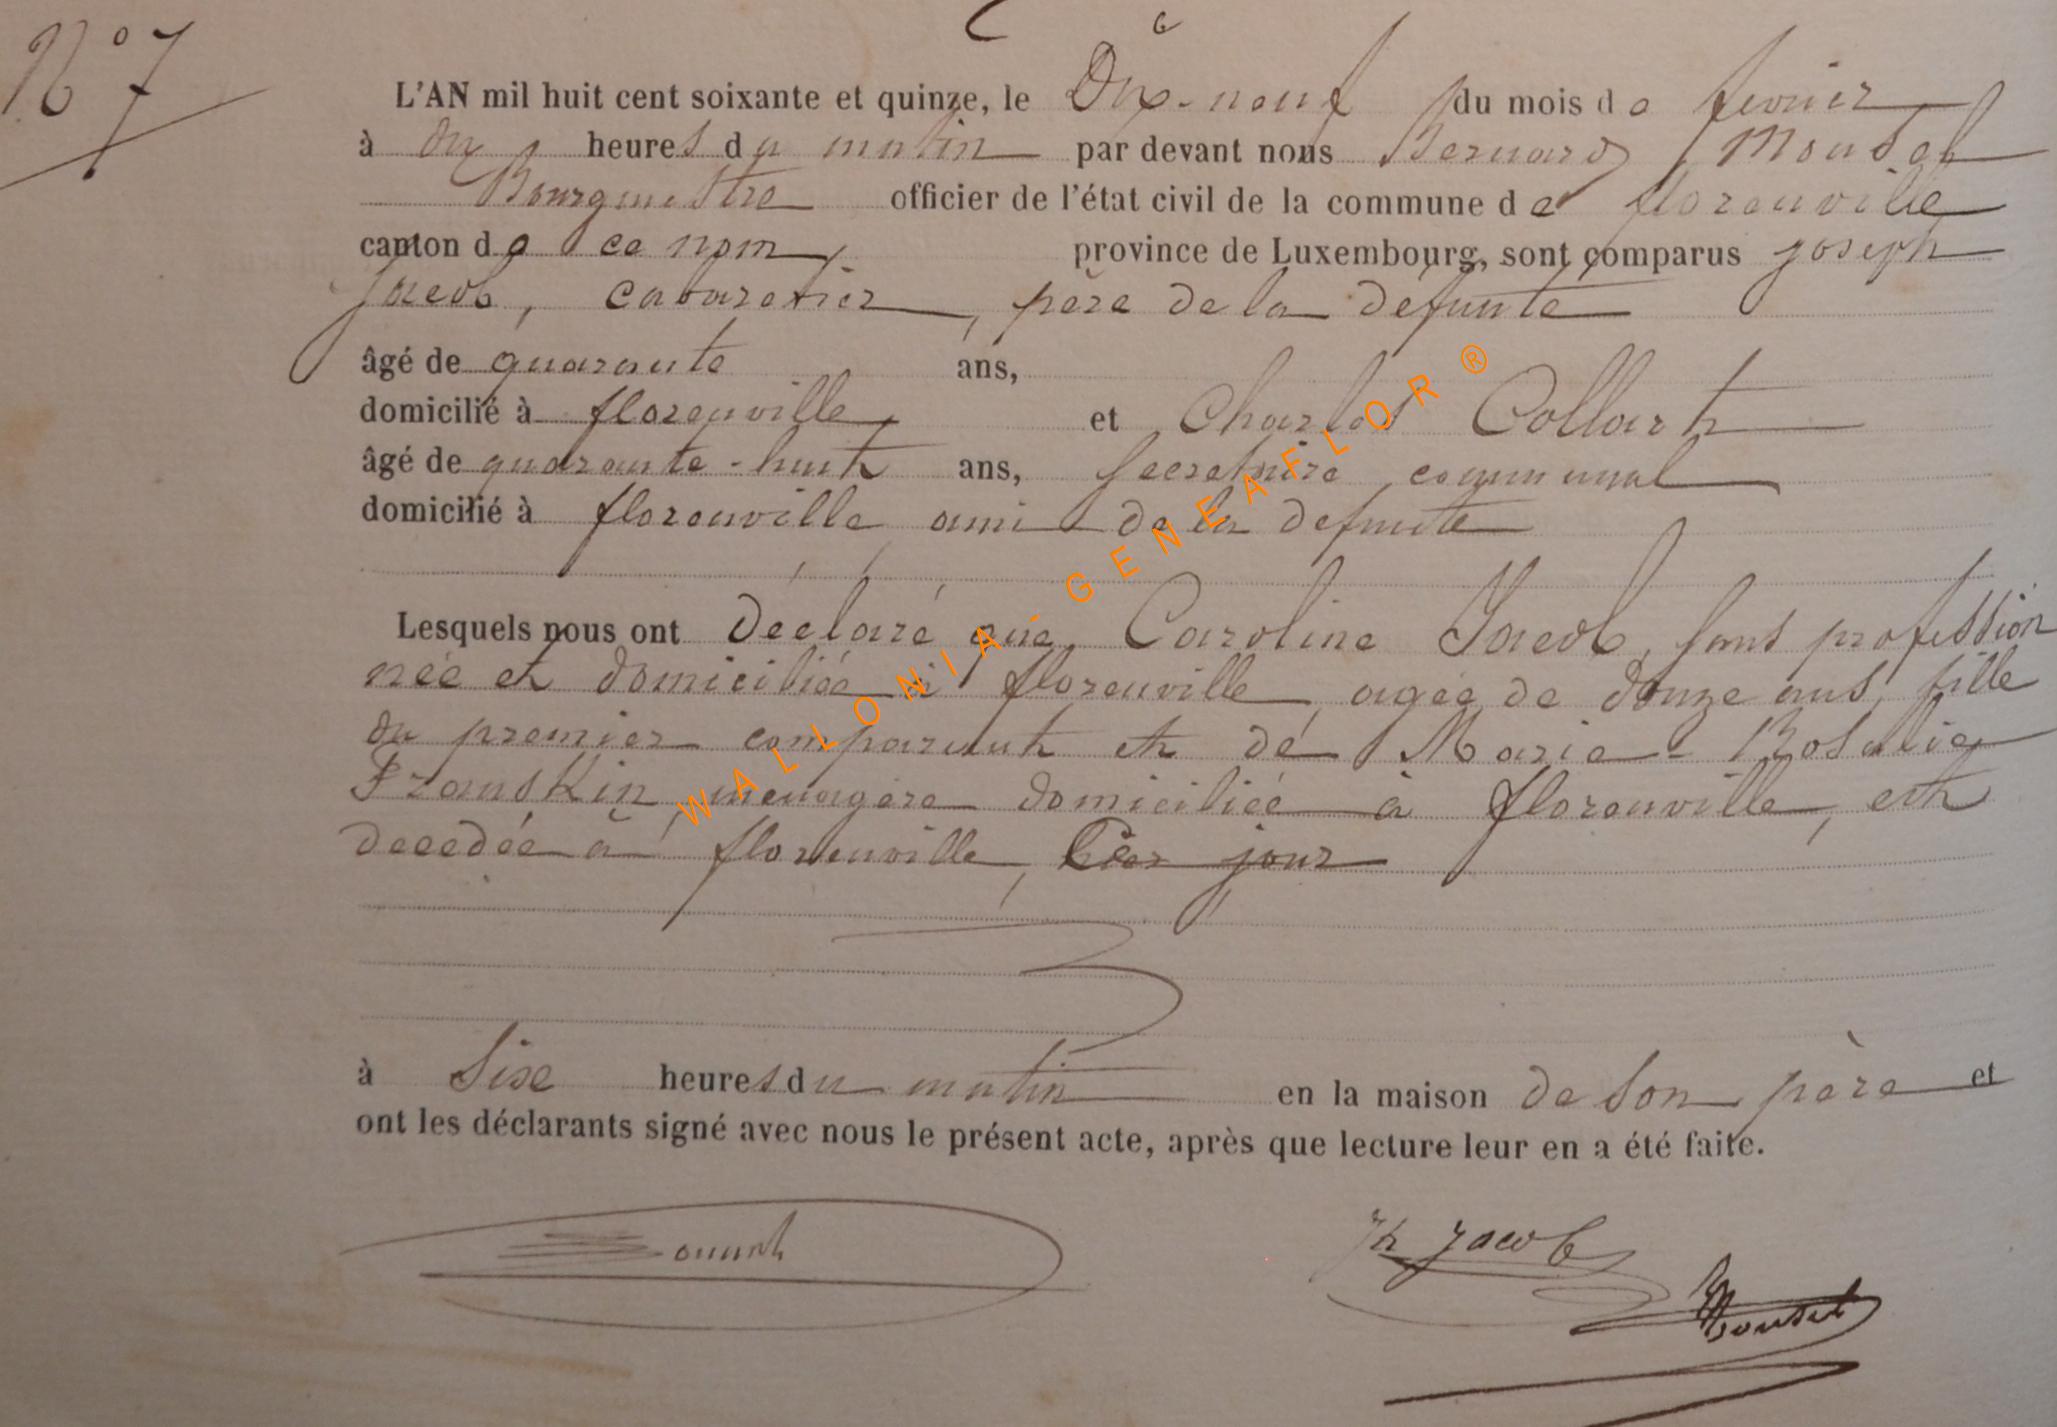 N° 7
L'AN mil huit cent soixante et quinze, le Dix-neuf du mois de fevrier
à dix heures du matin par devant nous Bernard Mousel
Bourgmestre officier de l'état civil de la commune de florenville
canton de ce nom province de Luxembourg, sont comparus joseph
Jacob, cabaretier, père de la défunte
âgé de quarante ans,
domicilié à florenville et Charles Collart
âgé de quarante-huit ans, secretaire communal
domicilié à florenville ami de la defunte
Lesquels nous ont déclaré que Caroline Jacob, sans profession
née et domiciliée à florenville, agée de douze ans, fille
du premier comparant et de Marie-Rosalie
Franskin, menagère domiciliée à florenville, est
decedée à florenville, hier jour
à six heures du matin en la maison de son père et
ont les déclarants signé avec nous le présent acte, après que lecture leur en a été faite.
Jh Jacob
Mousel
WALLONIA-GENEAFLOR®